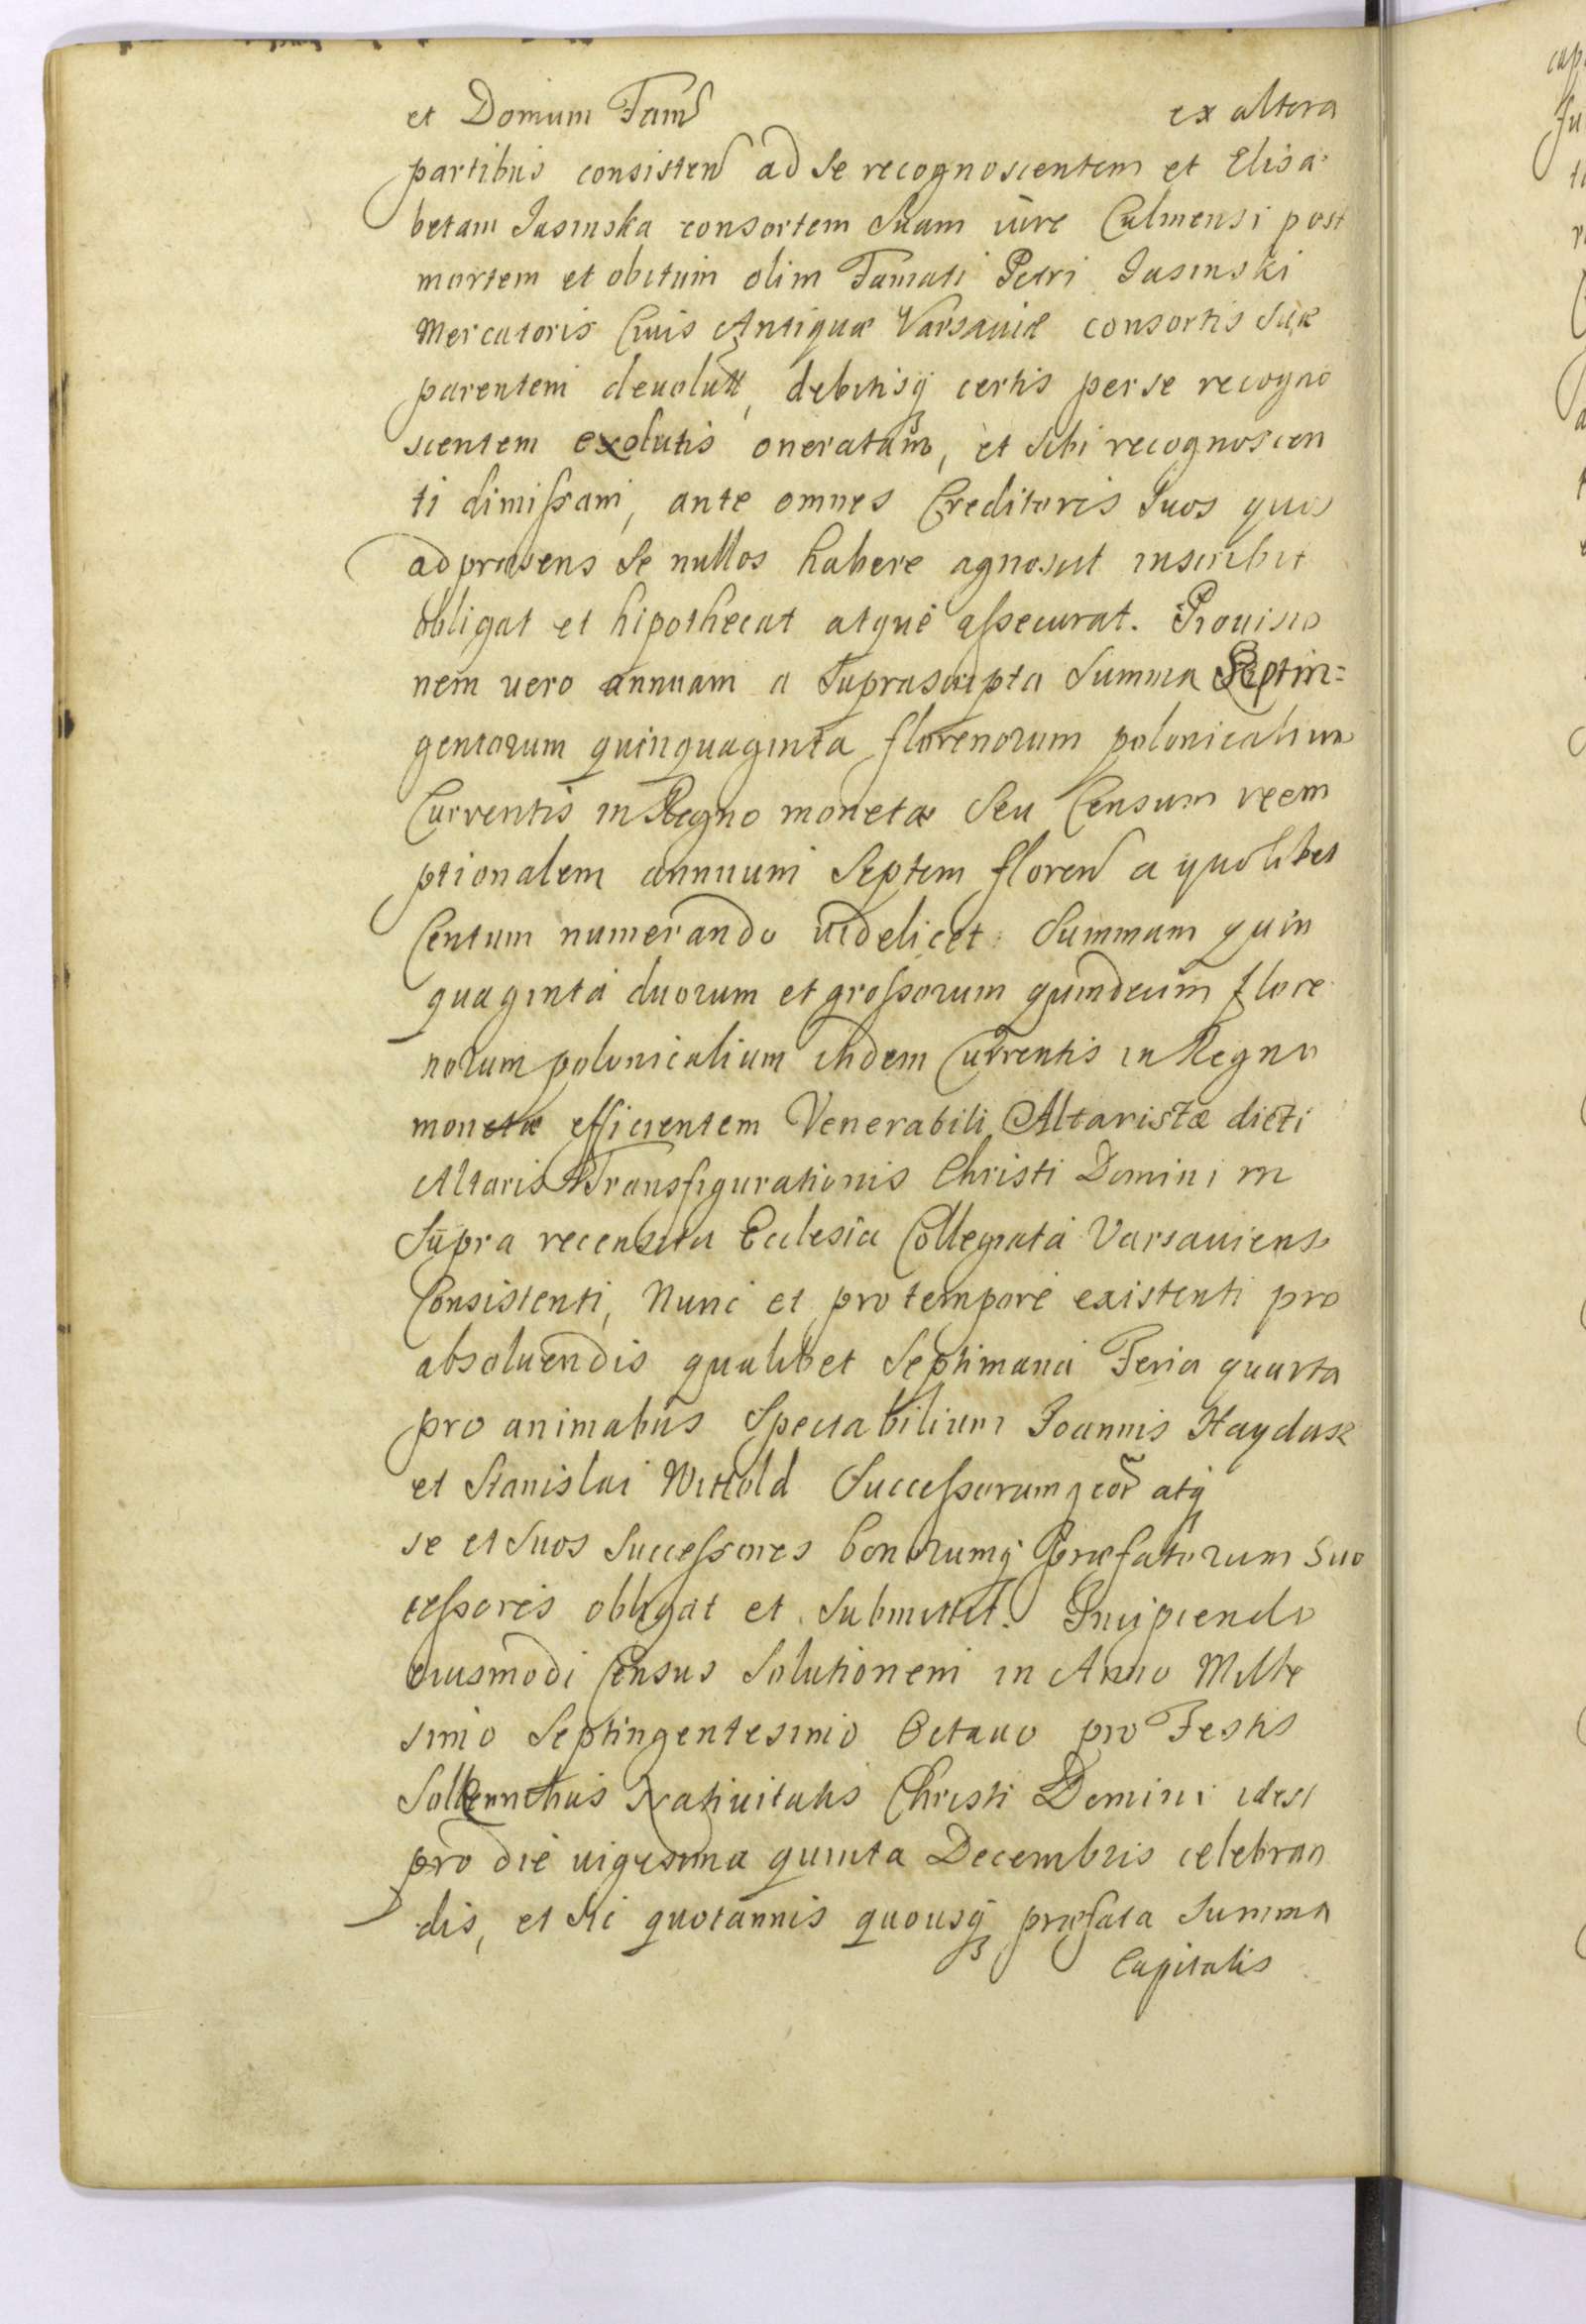 et Domum Fam ex altera
partibus consisten ad se recognoscentem et Elisa-
betam Jasinska consortem Suam iure Culmensi post
mortem et obitum olim Famati Petri Jasinski
Mercatoris Civis Antiquæ Varsaviæ consortis Suæ
parentem devolutt, debitisq certis per se recogno
scentem exolutis oneratam, et Sibi recognoscen
ti dimissam, ante omnes Creditores Suos quos
ad præsens Se nullos habere agnoscit inscribit
obligat et hipothecat atque assecurat. Provisio
nem vero annuam a Suprascripta Summa Septin=
gentorum quinquaginta florenorum polonicalium
Currentis in Regno monetæ Seu Censum reem
ptionalem annuum Septem floren a quolibet
Centum numerando videlicet Summam quin
quaginta duorum et grossorum quindecim flore
norum polonicalium itidem Currentis in Regno
monetæ efficientem Venerabili Altaristæ dicti
Altaris Transfigurationis Christi Domini in
Supra recensita Ecclesia Collegiata Varsaviensi
Consistenti, Nunc et pro tempore existenti pro
absolvendis qualibet Septimana Feria quarta
pro animabus Spectabilium Joannis Haydasz
et Stanislai Wittold Successorumq eor atq
se et Suos Successores bonorumq Præfatorum Suc
cessores obligat et Submittit. Incipiendo
eiusmodi Census Solutionem in Anno Mille
simo Septingentesimo Octavo pro Festis
Sollennibus Nativitatis Christi Domini idest
pro die vigesima quinta Decembris celebran
dis, et Sic quotannis quousq præfata Summa
Capitalis